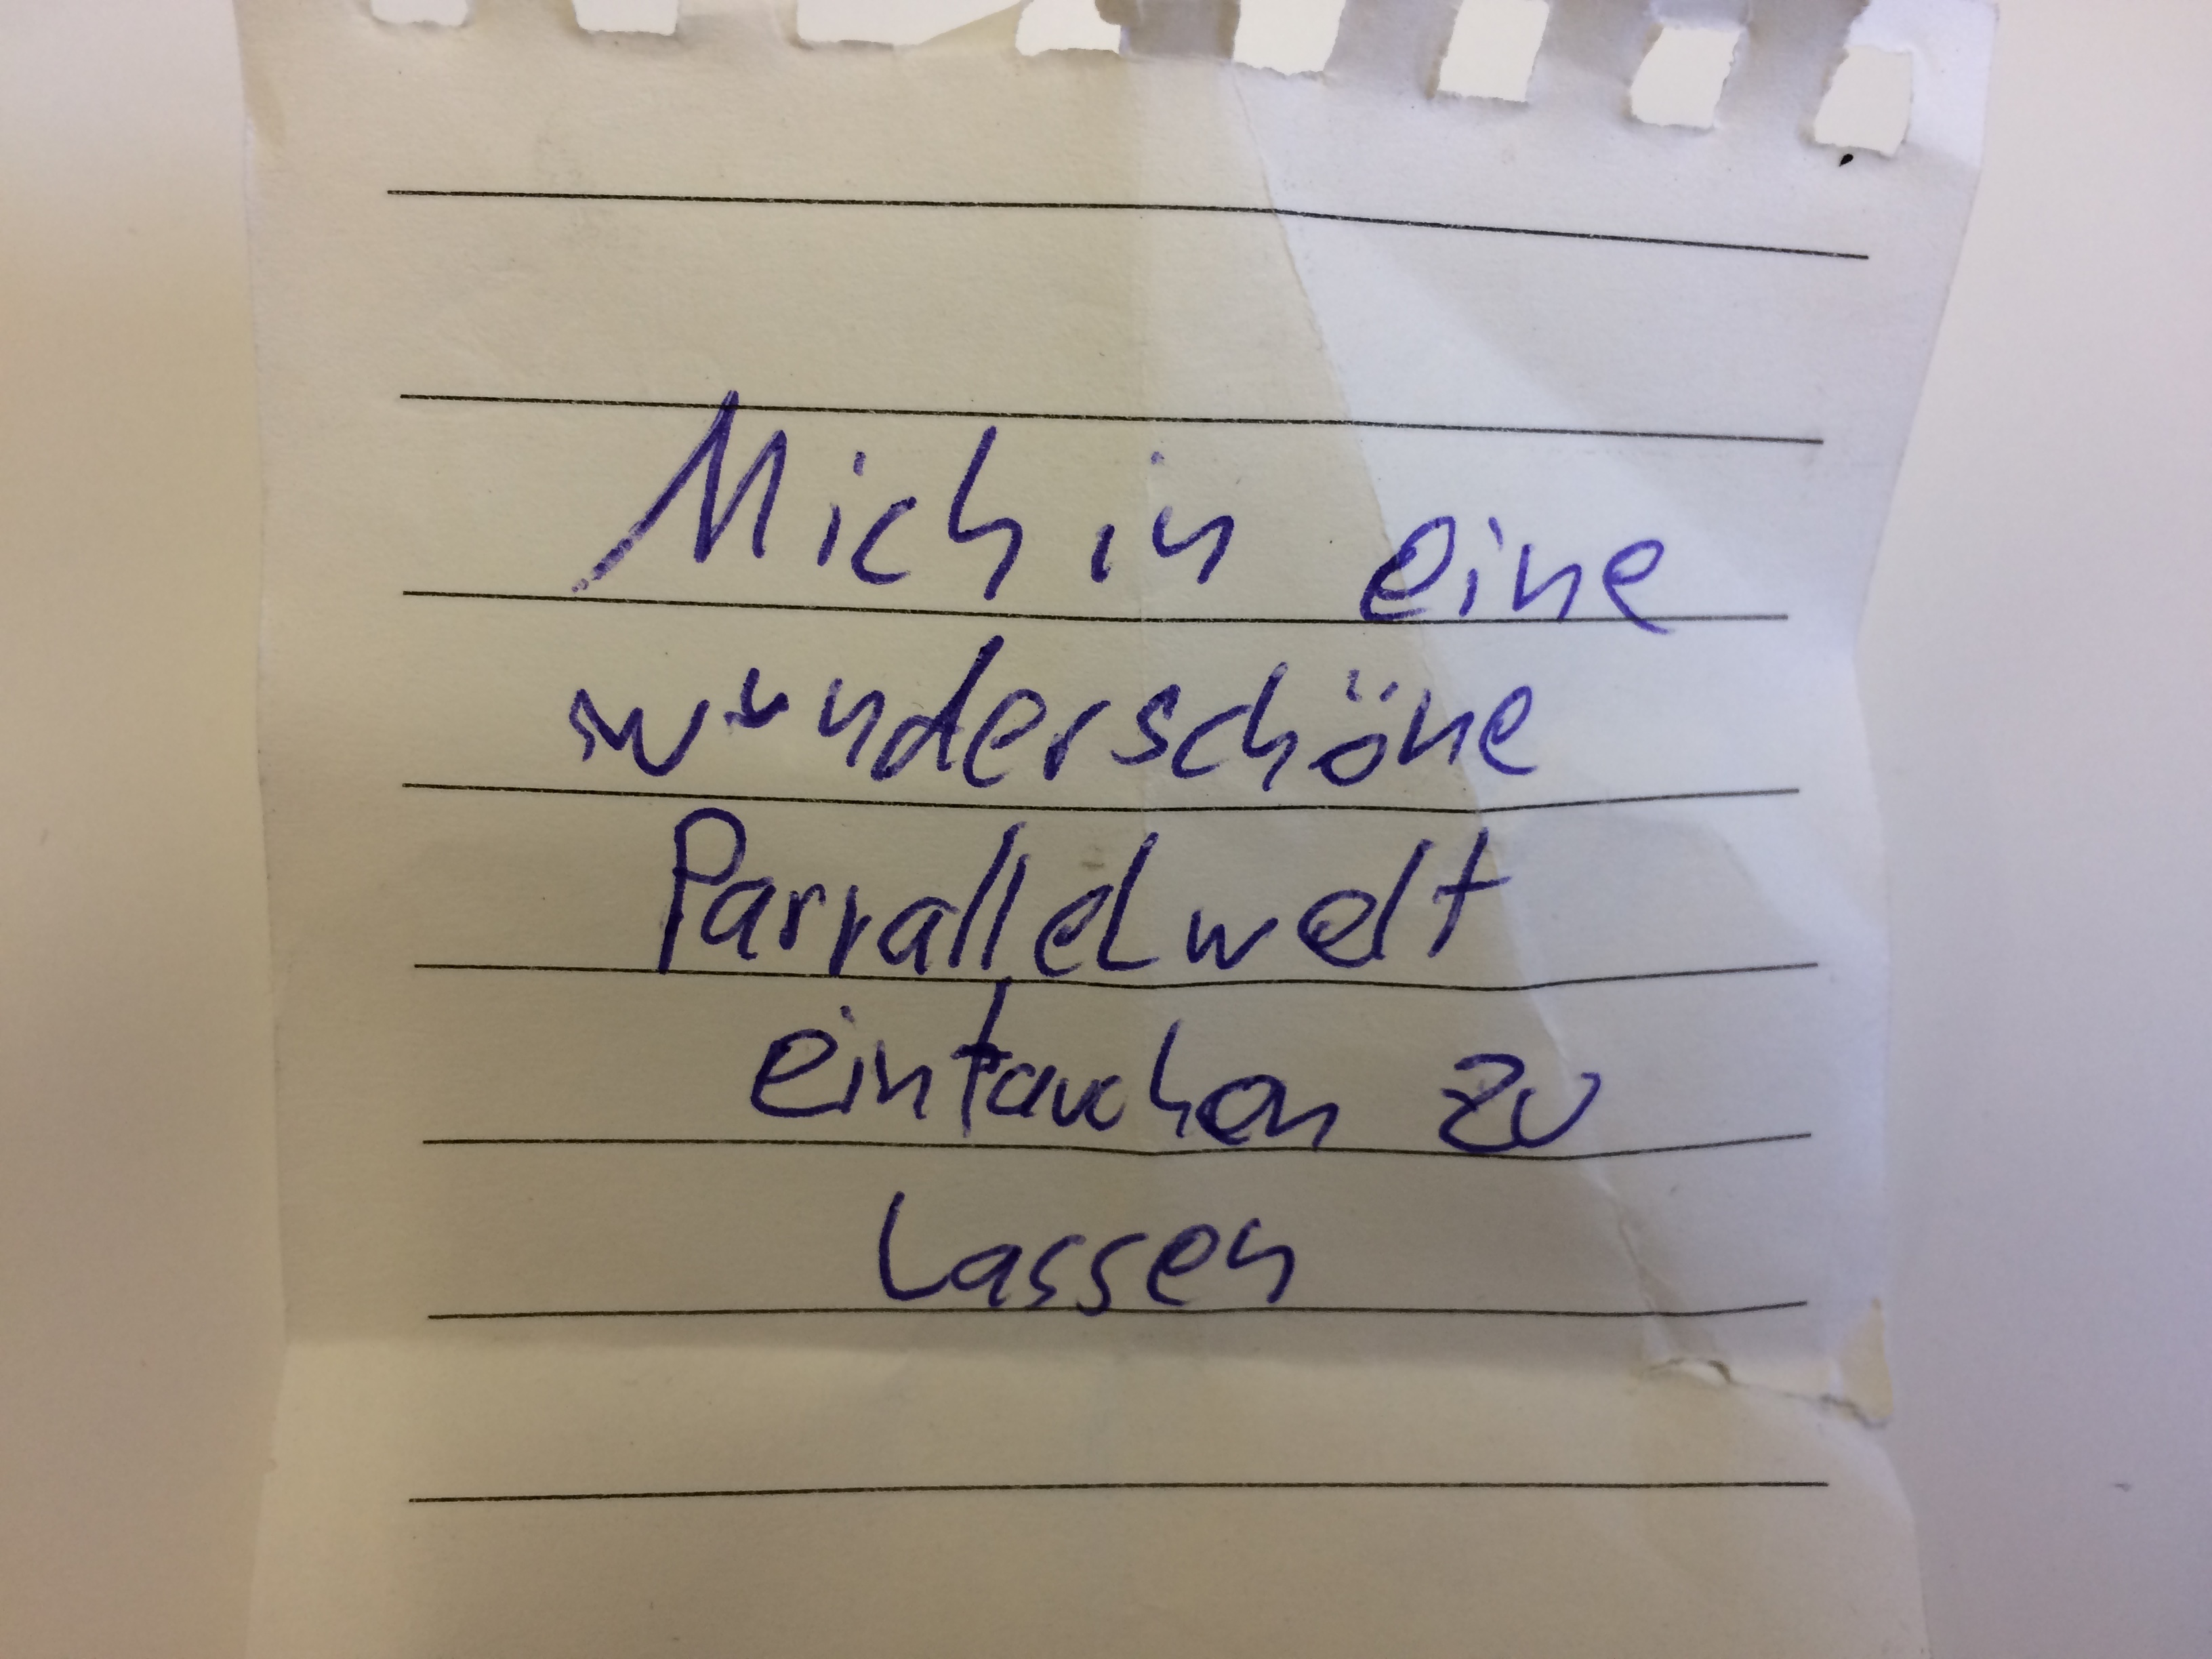 Mich in eine
wunderschöne
Parrallelwelt
eintauchen zu
Lassen